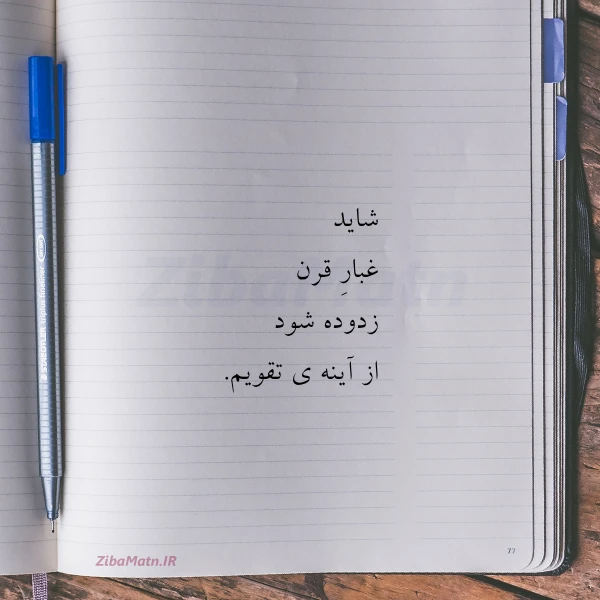 شاید
غبارِ قرن
زدوده شود
از آینه ی تقویم.
ZibaMatn
STAEDTLER triplus fineliner
77
ZibaMatn.IR